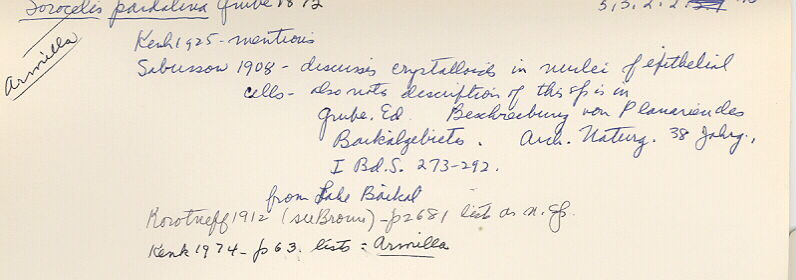 Sorocelis pardalina Grube 1872
5, 3, 2, 2.
Armilla
Kenk 1925 - mentions
Sabussow 1908 - discusses crystalloids in nuclei of epithelial
cells - also notes description of this sp is in
Grube. Ed. Beschreibung von Planarien des
Baikalgebietes. Arch. Naturg. 38 Jahrg.,
I Bd. S. 273-292.
from Lake Baikal
Korotneff 1912 (see Brown) - p2681 lists as n. sp.
Kenk 1974 - p 63. lists = Armilla